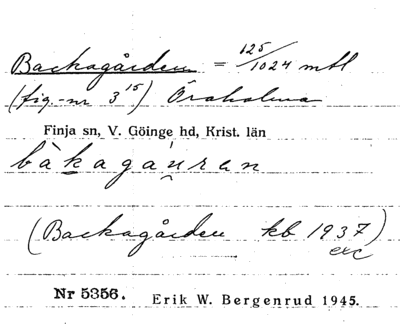 Backagården = 125/1024 mtl
(fig.-nr 3¹⁵) Öraholma
Finja sn, V. Göinge hd, Krist. län
bàkagáu̯rən
(Backagården kb 1937)
exc
Nr 5356. Erik W. Bergenrud 1945.